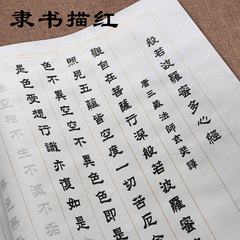 隶书描红
般若波羅蜜多心經
唐三藏法師玄奘譯
觀自在菩薩行深般若波羅蜜
照見五蘊皆空度一切苦厄舍
色不異空空不異色色即是
是色受想行識亦復如是
生不滅不垢